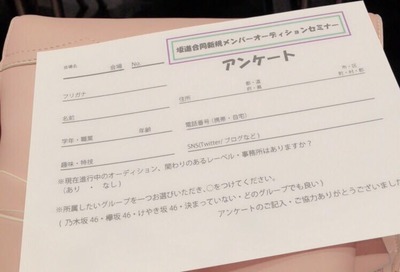 坂道合同新規メンバーオーディションセミナー
アンケート
会場名　会場　No.
フリガナ
名前
住所　都・道・府・県　市・区・町・村・郡
学年・職業　年齢
電話番号(携帯・自宅)
趣味・特技
SNS(Twitter/ブログなど)
※現在進行中のオーディション，関わりのあるレーベル・事務所はありますか？
（あり　・　なし）
※所属したいグループを一つお選びいただき、○をつけてください。
（ 乃木坂 46・欅坂 46・けやき坂 46・決まっていない・どのグループでも良い ）
アンケートのご記入・ご協力ありがとうございました